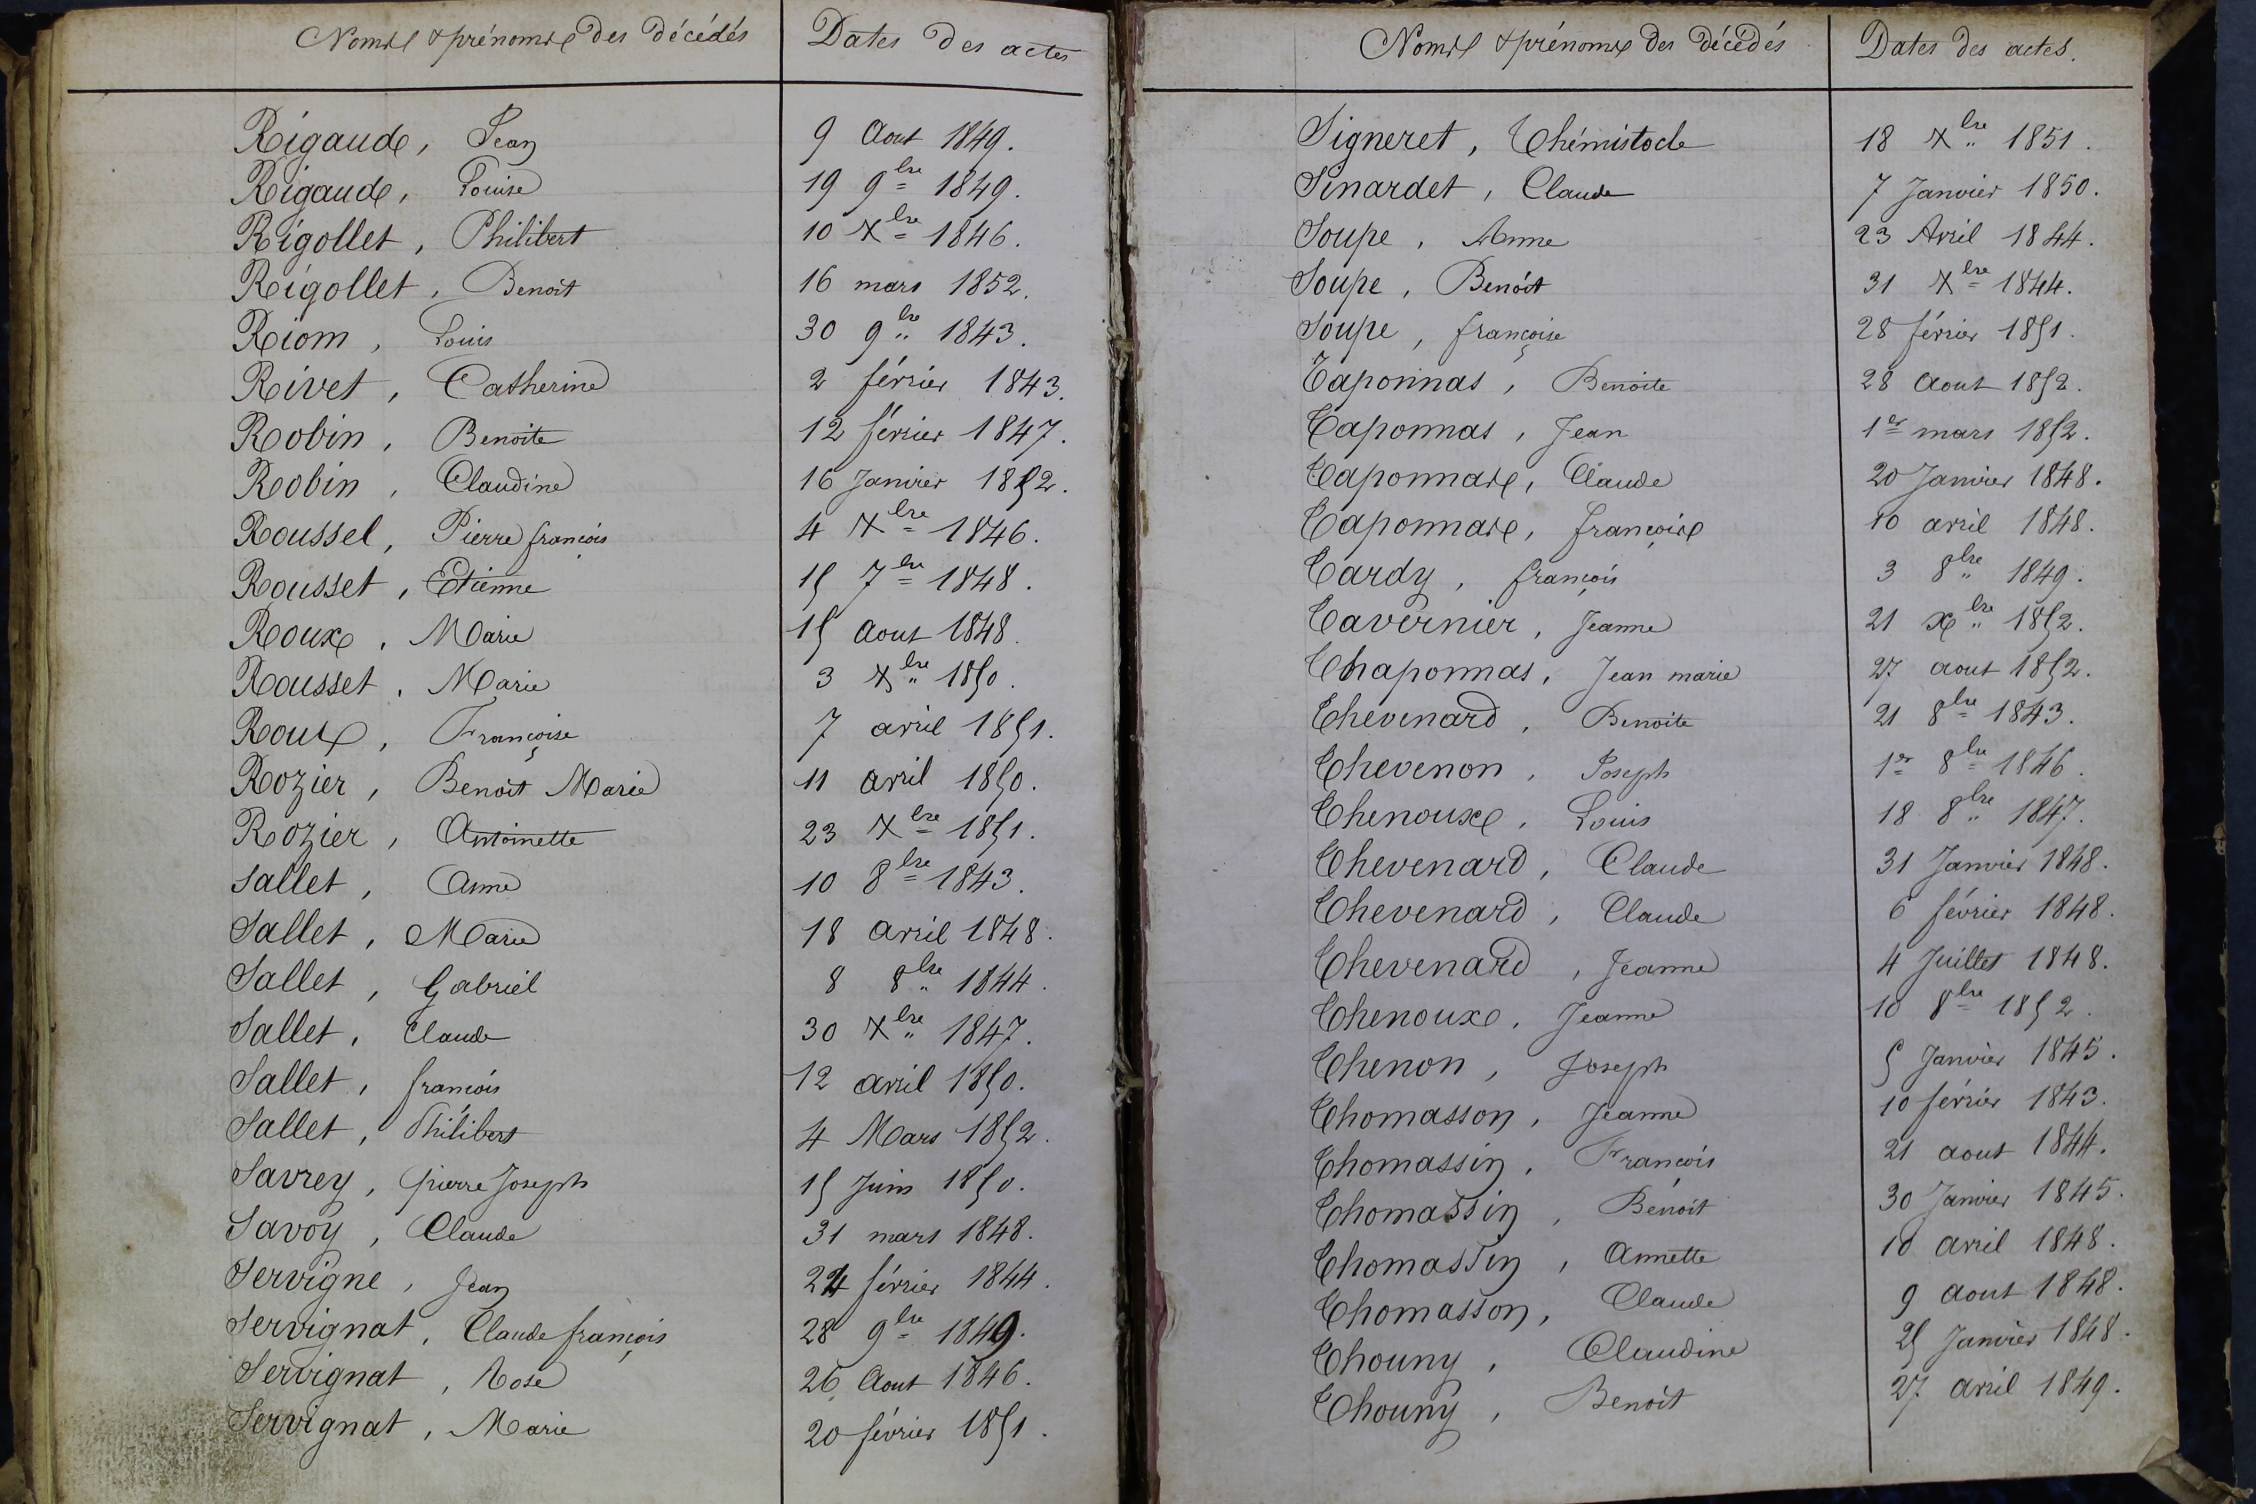 Noms & prénoms des décédés Dates des actes
Rigaud, Jean 9 Aout 1849.
Rigaud, Louise 19 9bre 1849.
Rigollet, Philibert 10 Xbre 1846.
Rigollet, Benoit 16 mars 1852.
Riom, Louis 30 9bre 1843.
Rivet, Catherine 2 février 1843.
Robin, Benoite 12 février 1847.
Robin, Claudine 16 Janvier 1852.
Roussel, Pierre françois 4 Xbre 1846.
Rousset, Etienne 15 7bre 1848.
Roux, Marie 15 Aout 1848.
Rousset, Marie 3 Xbre 1850.
Roux, Françoise 7 avril 1851.
Rozier, Benoit Marie 11 avril 1850.
Rozier, Antoinette 23 Xbre 1851.
Sallet, Anne 10 8bre 1843.
Sallet, Marie 18 avril 1848.
Sallet, Gabriel 8 8bre 1844.
Sallet, Claude 30 Xbre 1847.
Sallet, françois 12 avril 1850.
Sallet, Philibert 4 Mars 1852.
Savrey, pierre Joseph 15 Juin 1850.
Savoy, Claude 31 mars 1848.
Servigne, Jean 24 février 1844.
Servignat, Claude françois 28 9bre 1849.
Servignat, Rose 26 Aout 1846.
Servignat, Marie 20 février 1851.
Noms & prénoms des décédés Dates des actes.
Signeret, Thémistocle 18 Xbre 1851.
Sinardet, Claude 7 Janvier 1850.
Soupe, Anne 23 Avril 1844.
Soupe, Benoit 31 Xbre 1844.
Soupe, françoise 28 février 1851.
Taponnas, Benoite 28 Aout 1852.
Taponnas, Jean 1er mars 1852.
Taponnas, Claude 20 Janvier 1848.
Taponnas, françoise 10 avril 1848.
Tardy, françois 3 8bre 1849.
Tavernier, Jeanne 21 xbre 1852.
Thaponnas, Jean marie 27 aout 1852.
Thevenard, Benoite 21 8bre 1843.
Thevenon, Joseph 1er 8bre 1846.
Thenoux, Louis 18 8bre 1847.
Thevenard, Claude 31 Janvier 1848.
Thevenard, Claude 6 février 1848.
Thevenard, Jeanne 4 Juillet 1848.
Thenoux, Jeanne 10 8bre 1852.
Thenon, Joseph 5 Janvier 1845.
Thomasson, Jeanne 10 février 1843.
Thomassin, François 21 aout 1844.
Thomassin, Benoit 30 Janvier 1845.
Thomassin, Annette 10 avril 1848.
Thomasson, Claude 9 aout 1848.
Thouny, Claudine 25 Janvier 1848.
Thouny, Benoit 27 avril 1849.